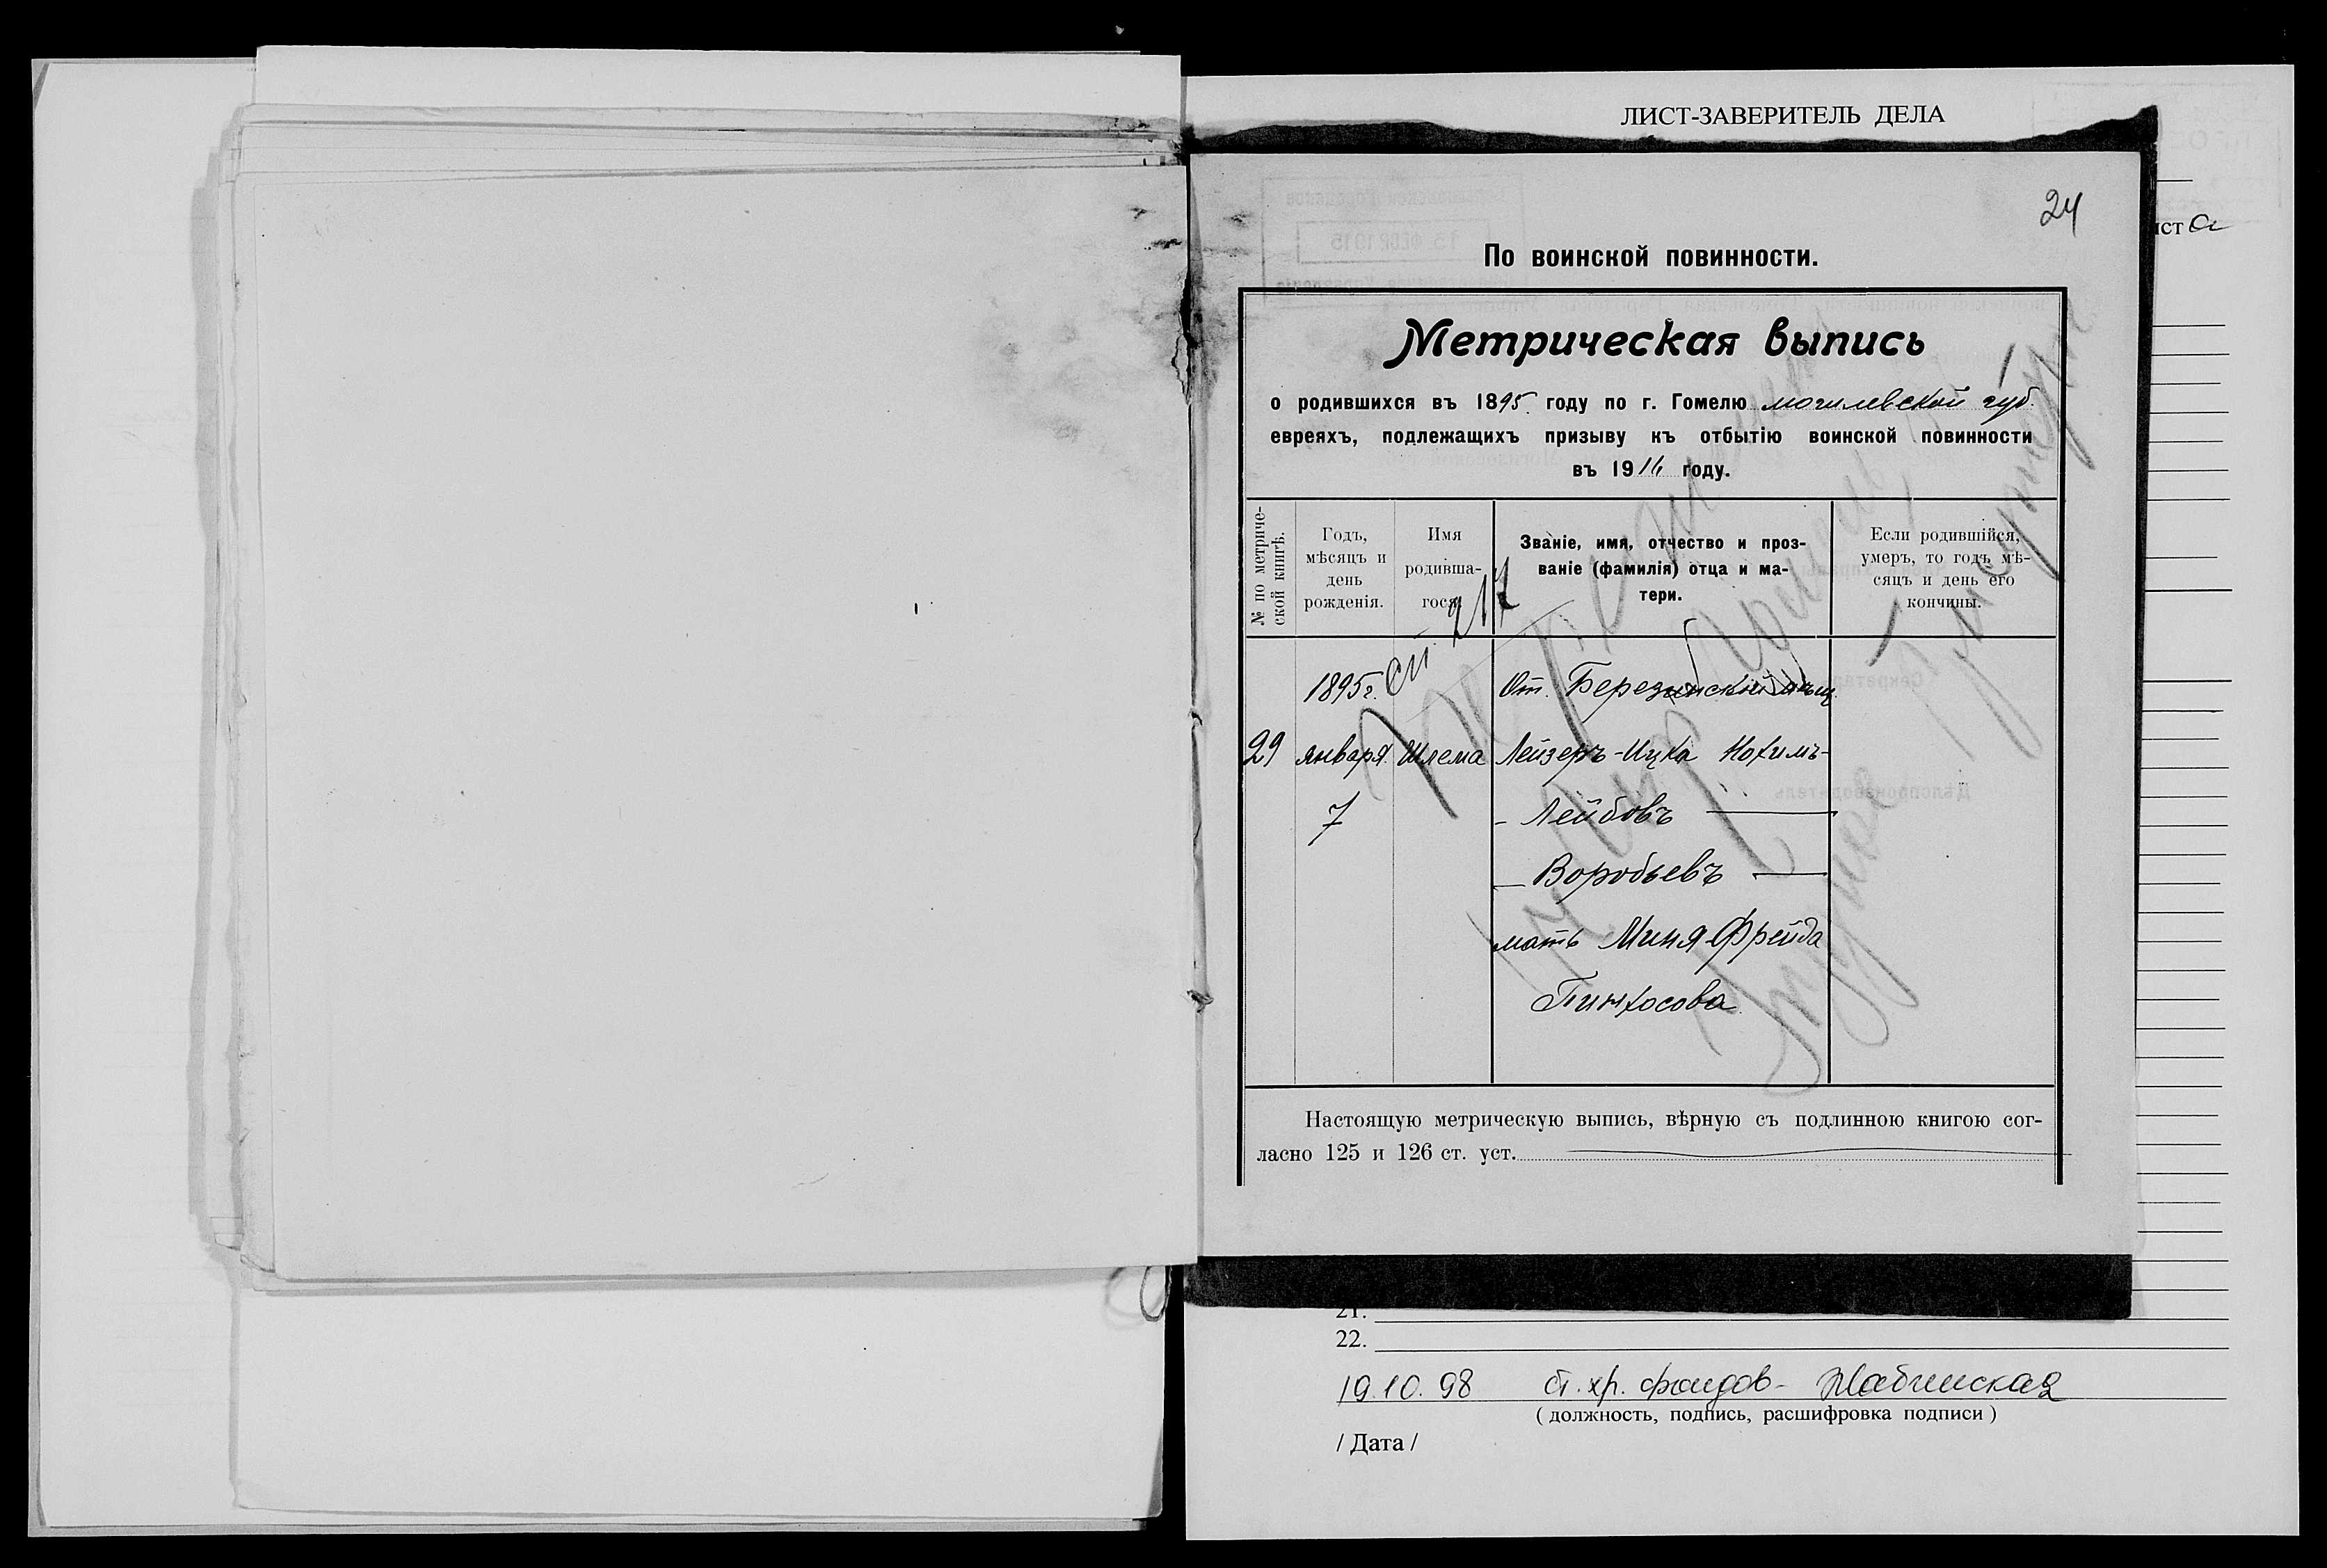 ЛИСТ-ЗАВЕРИТЕЛЬ ДЕЛА
24
По воинской повинности.
Метрическая выпись
о родившихся въ 1895 году по г. Гомелю могилевской губ.
евреяхъ, подлежащихъ призыву къ отбытію воинской повинности
въ 1916 году.
№ по метриче-
ской книгѣ.
Годъ,
мѣсяцъ и
день
рожденія.
Имя
родивша-
гося.
Званіе, имя, отчество и проз-
ваніе (фамилія) отца и ма-
тери.
Если родившійся,
умеръ, то годъ мѣ-
сяцъ и день его
кончины.
217
1895 г. От. Березинскій мѣщ.
29 января Шлема Лейзеръ-Ицка Нохимъ-
7 - Лейбовъ
Воробьевъ
мать Миня-Фрейда
Пинхосова
Настоящую метрическую выпись, вѣрную съ подлинною книгою сог-
ласно 125 и 126 ст. уст.
21.
22.
19.10.98 ст. хр. фондов-
( должность, подпись, расшифровка подписи )
/ Дата /